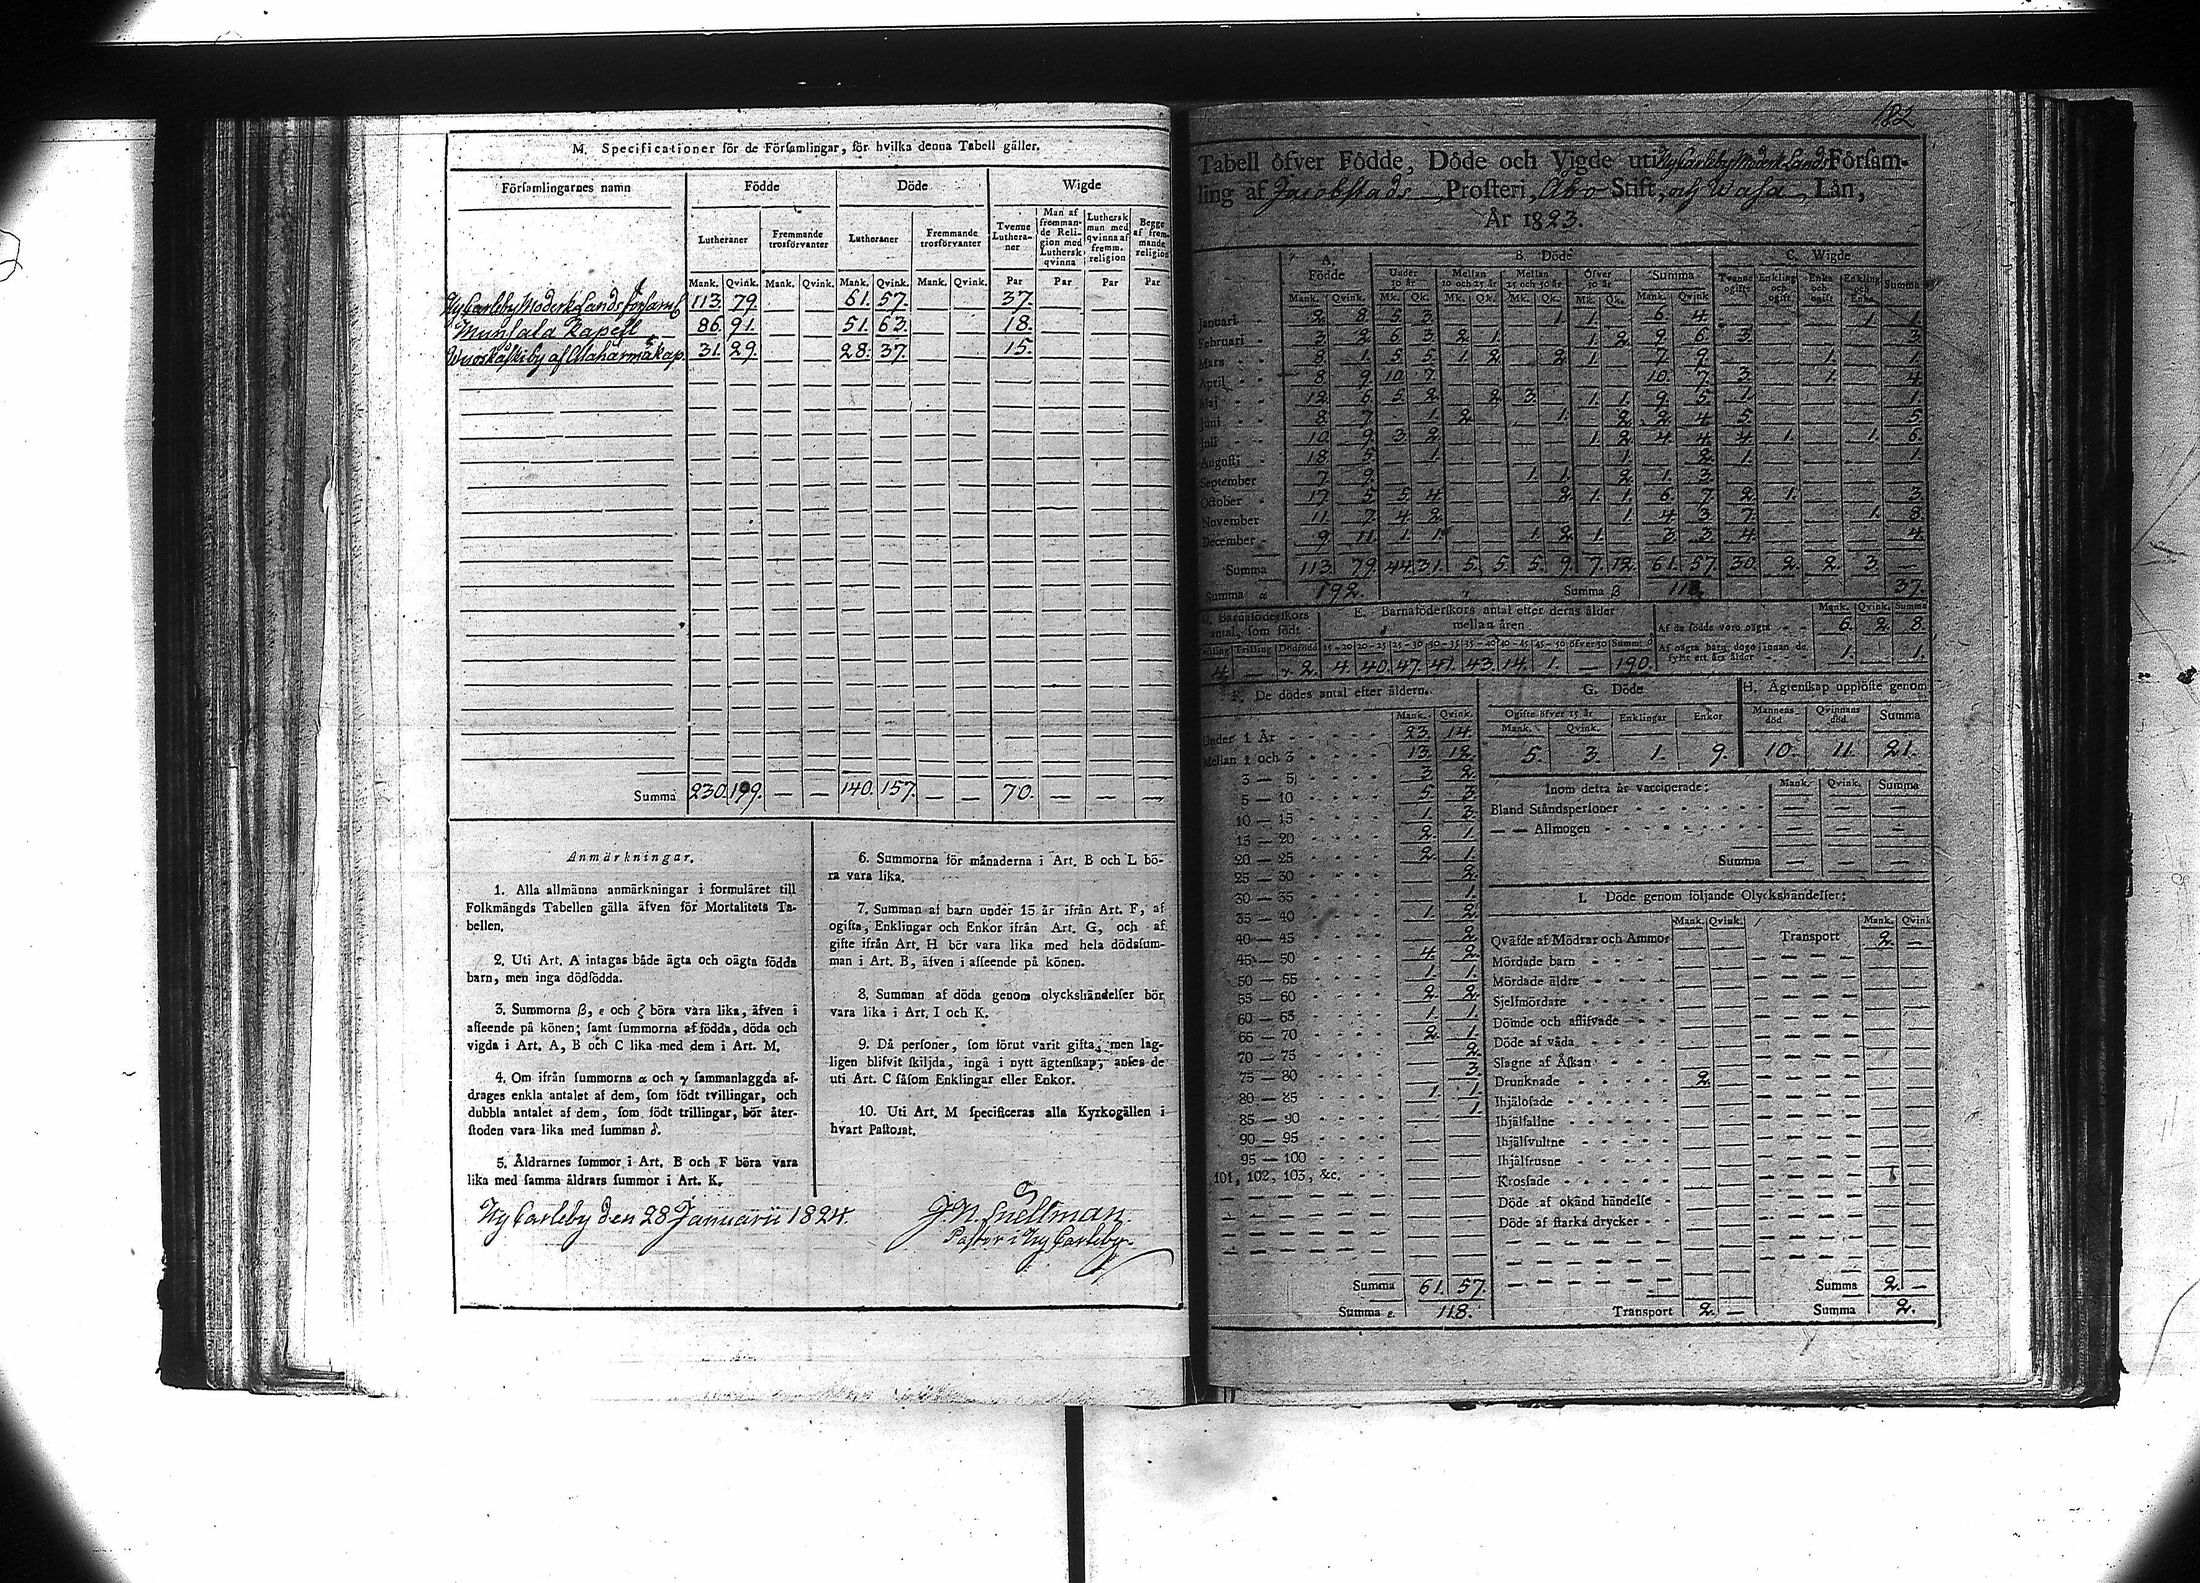 M. Specificationer för de Församlingar, för hvilka denna Tabell gäller.
Församlingarnes namn Födde Döde Wigde
Lutheraner Fremmande trosförvanter Lutheraner Fremmande trosförvanter Tvenne Lutheraner Man af fremmande Religion med Luthersk qvinna Luthersk man med qvinna af fremm. religion Begge af fremmande religion
Mank. Qvink. Mank. Qvink. Mank. Qvink. Mank. Qvink. Par Par Par Par
Ny Carleby Moderk. Lands Församl. 113. 79. — — 61. 57. — — 37. — — —
Munsala Kapell 86. 91. — — 51. 63. — — 18. — — —
Wuoskoski by af Alahärmä kap. 31. 29. — — 28. 37. — — 15. — — —
Summa 230. 199. — — 140. 157. — — 70. — — —
Anmärkningar.
1. Alla allmänna anmärkningar i formuläret till
Folkmängds Tabellen gälla äfven för Mortalitets Ta-
bellen.
2. Uti Art. A intagas både ägta och oägta födda
barn, men inga dödfödda.
3. Summorna β, ε och ζ böra vara lika, äfven i
afseende på könen; samt summorna af födda, döda och
vigda i Art. A, B och C lika med dem i Art. M.
4. Om ifrån summorna α och γ sammanlaggda af-
drages enkla antalet af dem, som födt tvillingar, och
dubbla antalet af dem, som födt trillingar, bör åter-
stoden vara lika med summan δ.
5. Åldrarnes summor i Art. B och F böra vara
lika med samma åldrars summor i Art. K.
6. Summorna för månaderna i Art. B och L bö-
ra vara lika.
7. Summan af barn under 15 år ifrån Art. F, af
ogifta, Enklingar och Enkor ifrån Art. G, och af
gifte ifrån Art. H bör vara lika med hela dödssum-
man i Art. B, äfven i afseende på könen.
8. Summan af döda genom olyckshändelser bör
vara lika i Art. I och K.
9. Då personer, som förut varit gifta, men lag-
ligen blifvit skiljda, ingå i nytt ägtenskap, anses de
uti Art. C såsom Enklingar eller Enkor.
10. Uti Art. M specificeras alla Kyrkogällen i
hvart Pastorat.
Ny Carleby den 28 Januarii 1824.
J. N. Snellman
Pastor i Ny Carleby
182
Tabell öfver Födde, Döde och Vigde uti Ny Carleby Moderk. Lands Försam-
ling af Jacobstads Prosteri, Åbo Stift, och Wasa Län,
År 1823.
A. Födde B. Döde C. Wigde
Under 10 år Mellan 10 och 25 år Mellan 25 och 50 år Öfver 50 år Summa Tvenne ogifte Enkling och ogift Enka och ogift Enkling och Enka Summa
Mank. Qvink. Mk. Qk. Mk. Qk. Mk. Qk. Mk. Qk. Mank. Qvink.
Januari 2 8 5 3 — — — 1 1 — 6 4 — — — 1 1
Februari 3 2 6 3 2 1 — — 1 2 9 6 3 — — — 3
Mars 8 1 5 5 1 2 — 2 1 — 7 9 — — 1 — 1
April 8 9 10 7 — — — — — — 10 7 3 — 1 — 4
Maj 12 6 5 2 — 2 3 — 1 1 9 5 1 — — — 1
Juni 8 7 — 1 2 — — 1 — 2 2 4 5 — — — 5
Juli 10 9 3 2 — — — — 1 2 4 4 4 1 — 1 6
Augusti 18 5 — 1 — — — — — 1 — 2 1 — — — 1
September 7 9 — — — — 1 1 — 2 1 3 — — — — —
October 17 5 5 4 — — — 2 1 1 6 7 2 1 — — 3
November 11 7 4 2 — — — — — 1 4 3 7 — — 1 8
December 9 11 1 1 — — 1 2 1 — 3 3 4 — — — 4
Summa 113. 79. 44. 31. 5. 5. 5. 9. 7. 12. 61. 57. 30. 2. 2. 3. —
Summa α 192. Summa β 118. 37.
D. Barnaföderskors antal, som födt E. Barnaföderskors antal efter deras ålder mellan åren
Mank. Qvink. Summa
Af de födda voro oägta 6. 2. 8.
Tvilling Trilling Dödfödd 15-20 20-25 25-30 30-35 35-40 40-45 45-50 öfver 50 Summa δ
Af oägta barn dogo innan de fyllt ett års ålder 1. — 1.
4. — γ. 2. 4. 40. 47. 41. 43. 14. 1. — 190.
F. De dödes antal efter åldern.
Mank. Qvink.
Under 1 År 23. 14.
Mellan 1 och 3 13. 12.
3 — 5 3. 2.
5 — 10 5. 3.
10 — 15 1. 3.
15 — 20 2. 1.
20 — 25 2. 1.
25 — 30 — 2.
30 — 35 — 1.
35 — 40 1. 2.
40 — 45 — 2.
45 — 50 4. 2.
50 — 55 1. 1.
55 — 60 2. 2.
60 — 65 1. 1.
65 — 70 2. 1.
70 — 75 — 2.
75 — 80 — 3.
80 — 85 1. 1.
85 — 90 — 1.
90 — 95 — —
95 — 100 — —
101, 102, 103, &c.
Summa 61. 57.
Summa ε. 118.
G. Döde
Ogifte öfver 15 år Enklingar Enkor
Mank. Qvink.
5. 3. 1. 9.
H. Ägtenskap upplöste genom
Mannens död Qvinnans död Summa
10. 11. 21.
Inom detta år vaccinerade: Mank. Qvink. Summa
Bland Ståndspersoner — — —
— — Allmogen — — —
Summa — — —
I. Döde genom följande Olyckshändelser:
Mank. Qvink. Mank. Qvink.
Qväfde af Mödrar och Ammor Transport 2. —
Mördade barn
Mördade äldre
Sjelfmördare
Dömde och aflifvade
Döde af våda
Slagne af Åskan
Drunknade 2.
Ihjälosade
Ihjälfallne
Ihjälsvultne
Ihjälfrusne
Krossade
Döde af okänd händelse
Döde af starka drycker
Summa 2. —
Transport 2. — Summa 2.